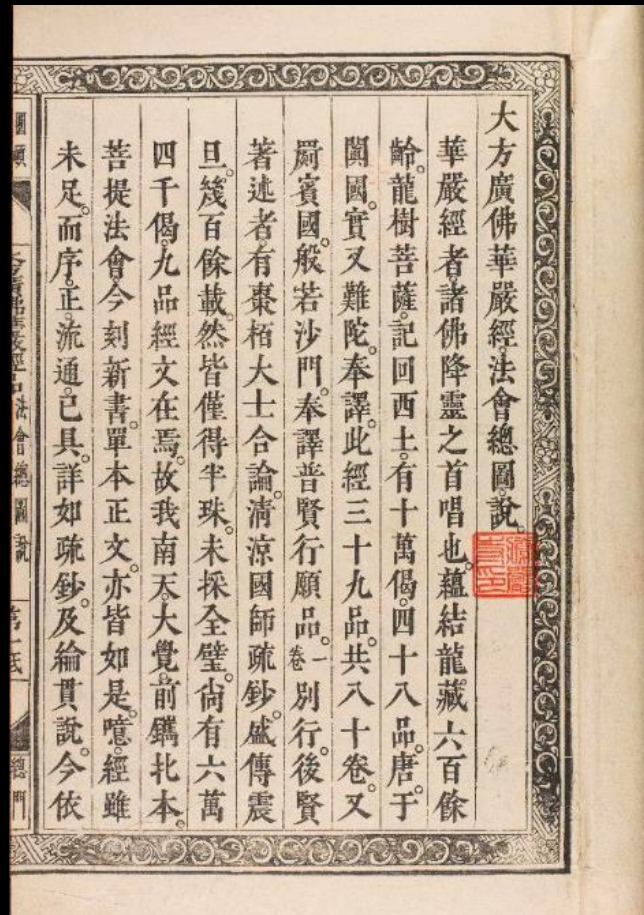 大方廣佛華嚴經法會總圖說。
華嚴經者諸佛降靈之首唱也。蘊結龍藏六百餘
齡。龍樹菩薩。記回西土。有十萬偈。四十八品。唐。于
闐國。實叉難陀。奉譯。此經三十九品。共八十卷。又
罽賓國。般若沙門。奉譯普賢行願品。一卷別行。後賢
著述者。有棗栢大士合論。清涼國師疏鈔。盛傳震
旦。幾百餘載。然皆僅得半珠。未採全璧。尙有六萬
四千偈。九品經文在焉。故我南天。大覺。前鐫北本。
菩提法會。今刻新書。單本正文。亦皆如是。噫。經雖
未足。而序。正。流通。已具。詳如疏鈔。及綸貫說。今依
法會總圖說